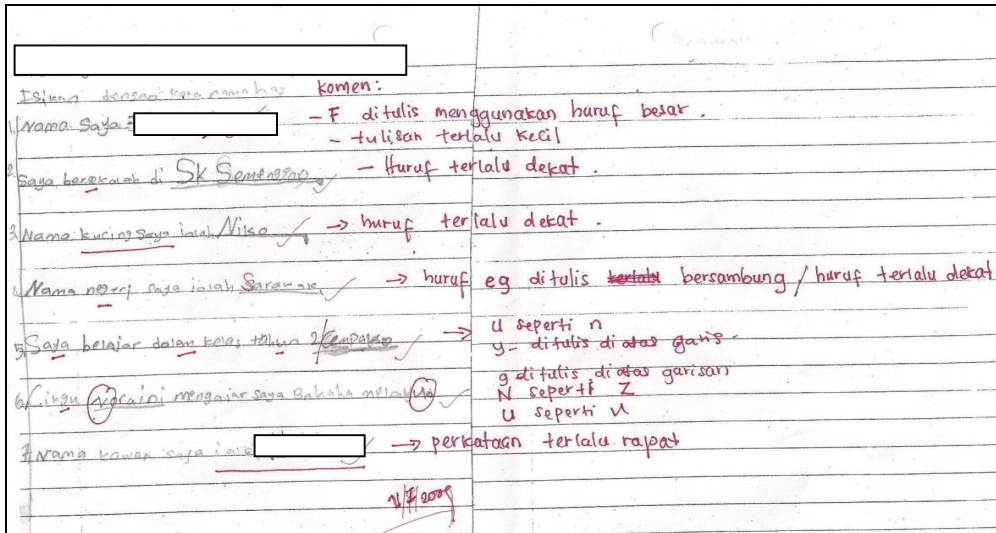 Isikan dengan kata nama khas
komen:
1. Nama Saya
- F ditulis menggunakan huruf besar.
- tulisan terlalu kecil
2. Saya bersekolah di Sk Semenggo
- Huruf terlalu dekat.
3. Nama kucing saya ialah Niko
→ huruf terlalu dekat.
4. Nama negeri saya ialah Sarawak
→ huruf eg ditulis terlalu bersambung / huruf terlalu dekat
5. Saya belajar dalam kelas tahun 2 Cempaka
→ u seperti n
y - ditulis di atas garis.
6. Cikgu Noraini mengajar saya Bahaha melayu
g ditulis di atas garisan
N seperti Z
u seperti u
7. Nama kawan saya ialah
→ perkataan terlalu rapat